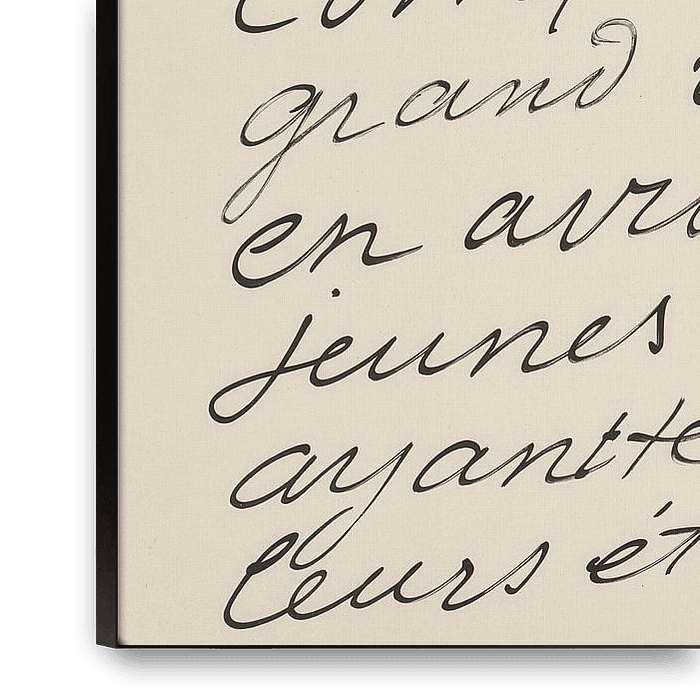 grand
en avri
jeunes
ayant te
leurs ét